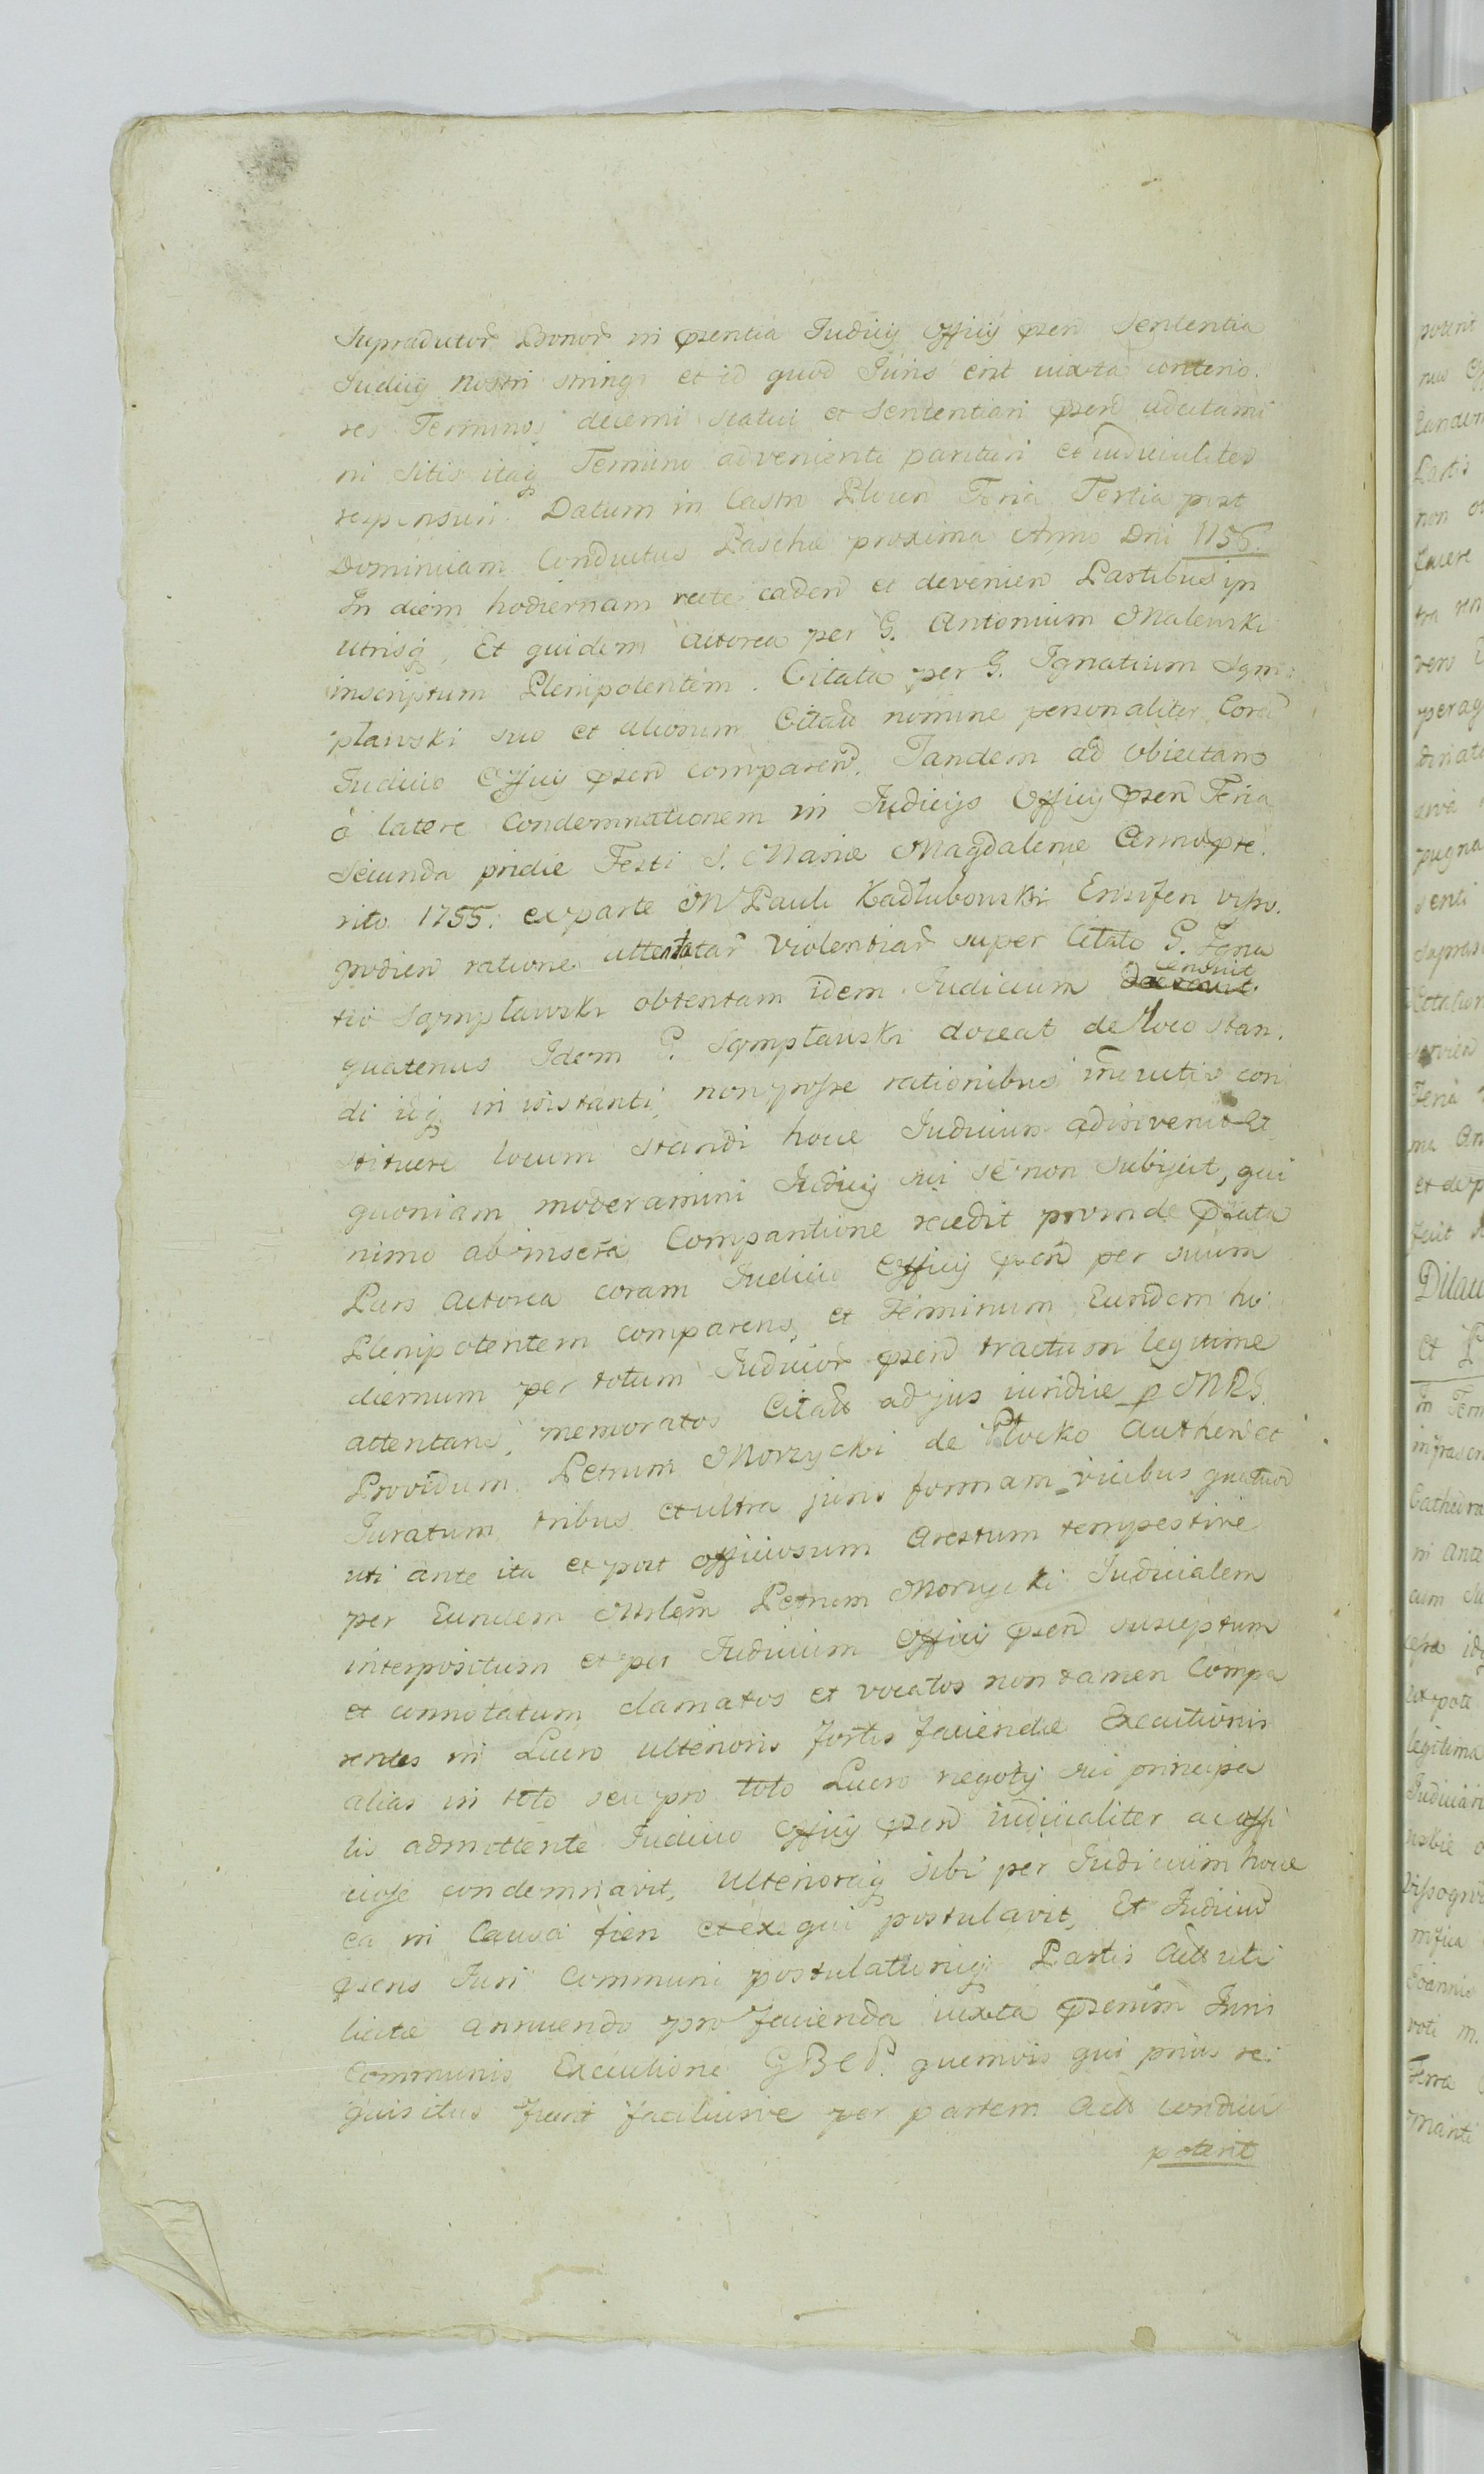 Supradictor Bonor in pzentia Judicij Officij pzen Sententia
Judicij nostri stringi et id quod Juris erit iuxta conteno.
res Terminos decerni statui et Sententiari pzen adcitami
ni Sitis itaq Termino advenienti parituri et iudicialiter
responsuri. Datum in Castro Plocen Feria Tertia post
Dominicam Conductus Paschae proxima Anno Dni 1756.
In diem hodiernam recte caden et devenien Partibus in
utrisq, Et quidem actorea per G. Antonium Malewski
inscriptum Plenipotentem. Citata per G. Ignatium Sgm:
pławski suo et aliorum Citato nomine personaliter Coram
Judicio Officij pzen comparen. Tandem ad obiectam
à latere Condemnationem in Judicijs Officij pzen Feria
Secunda pridie Festi S. Mariae Magdalenae Anno pte.
rito 1755. ex parte M Pauli Kadłubowski Ensiferi vyszo.
grodien ratione attentatar violentiar super Citato G. Igna
tio Sgmpławski obtentam idem Judicium censuit
quatenus Idem G. Sgmpławski doceat de loco stan.
di idq in instanti, non posse rationibus inductis con
stituere locum standi hocce Judicium adinvenit Et
quoniam moderamini Judicij sui se non subijcit, qui
nimo ab inserta Comparitione recedit proinde pfata
Pars actorea coram Judicio Officij pzen per suum
Plenipotentem comparens, et Terminum Eundem ho
diernum per totum Judicior pzen tractum legitime
attentans, memoratos Citatos ad jus iuridice p MRS.
Providum Petrum Morzycki de Płocko Authen et
Juratum tribus et ultra juris formam vicibus quatuor
uti ante ita et post officiosum Arestum tempestive
per Eundem Mnlem Petrum Morzycki Judicialem
interpositum et per Judicium Officij pzen susceptum
et connotatum clamatos et vocatos non tamen Compa
rentes in Lucro ulterioris fortis faciendae Executionis
alias in toto seu pro toto Lucro negotij sui principa
lis admittente Judicio Officij pzen iudicialiter ac offi
ciose condemnavit, ulterioraq sibi per Judicium hocce
ea in Causa fieri et exequi postulavit, Et Judicium
pzens Juri Communi postulationiq Partis Act uti
licitae annuendo pro facienda iuxta pzenim Juris
Communis Executione GBCP. quemvis qui prius re:
quisitus fuerit faciliusve per partem Act conduci
poterit